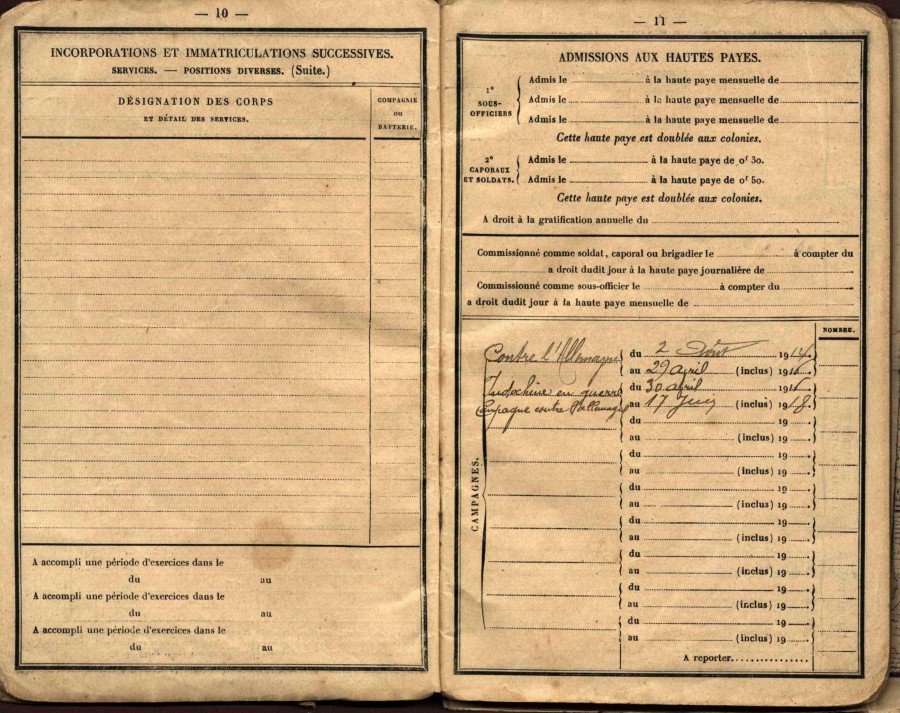 — 10 —
INCORPORATIONS ET IMMATRICULATIONS SUCCESSIVES.
SERVICES. — POSITIONS DIVERSES. (Suite.)
DÉSIGNATION DES CORPS
ET DÉTAIL DES SERVICES.
COMPAGNIE
OU
BATTERIE.
A accompli une période d'exercices dans le
du au
A accompli une période d'exercices dans le
du au
A accompli une période d'exercices dans le
du au
— 11 —
ADMISSIONS AUX HAUTES PAYES.
1°
SOUS-
OFFICIERS
Admis le à la haute paye mensuelle de
Admis le à la haute paye mensuelle de
Admis le à la haute paye mensuelle de
Cette haute paye est doublée aux colonies.
2°
CAPORAUX
ET SOLDATS.
Admis le à la haute paye de 0f 30.
Admis le à la haute paye de 0f 50.
Cette haute paye est doublée aux colonies.
A droit à la gratification annuelle du
Commissionné comme soldat, caporal ou brigadier le à compter du
a droit dudit jour à la haute paye journalière de
Commissionné comme sous-officier le à compter du
a droit dudit jour à la haute paye mensuelle de
NOMBRE.
CAMPAGNES.
Contre l'Allemagne du 2 Août 1914.
au 29 avril (inclus) 1916
Indochine en guerre du 30 avril 1916
Campagne contre l'allemagne au 17 Juin (inclus) 1918.
du 19
au (inclus) 19
du 19
au (inclus) 19
du 19
au (inclus) 19
du 19
au (inclus) 19
du 19
au (inclus) 19
du 19
au (inclus) 19
du 19
au (inclus) 19
A reporter